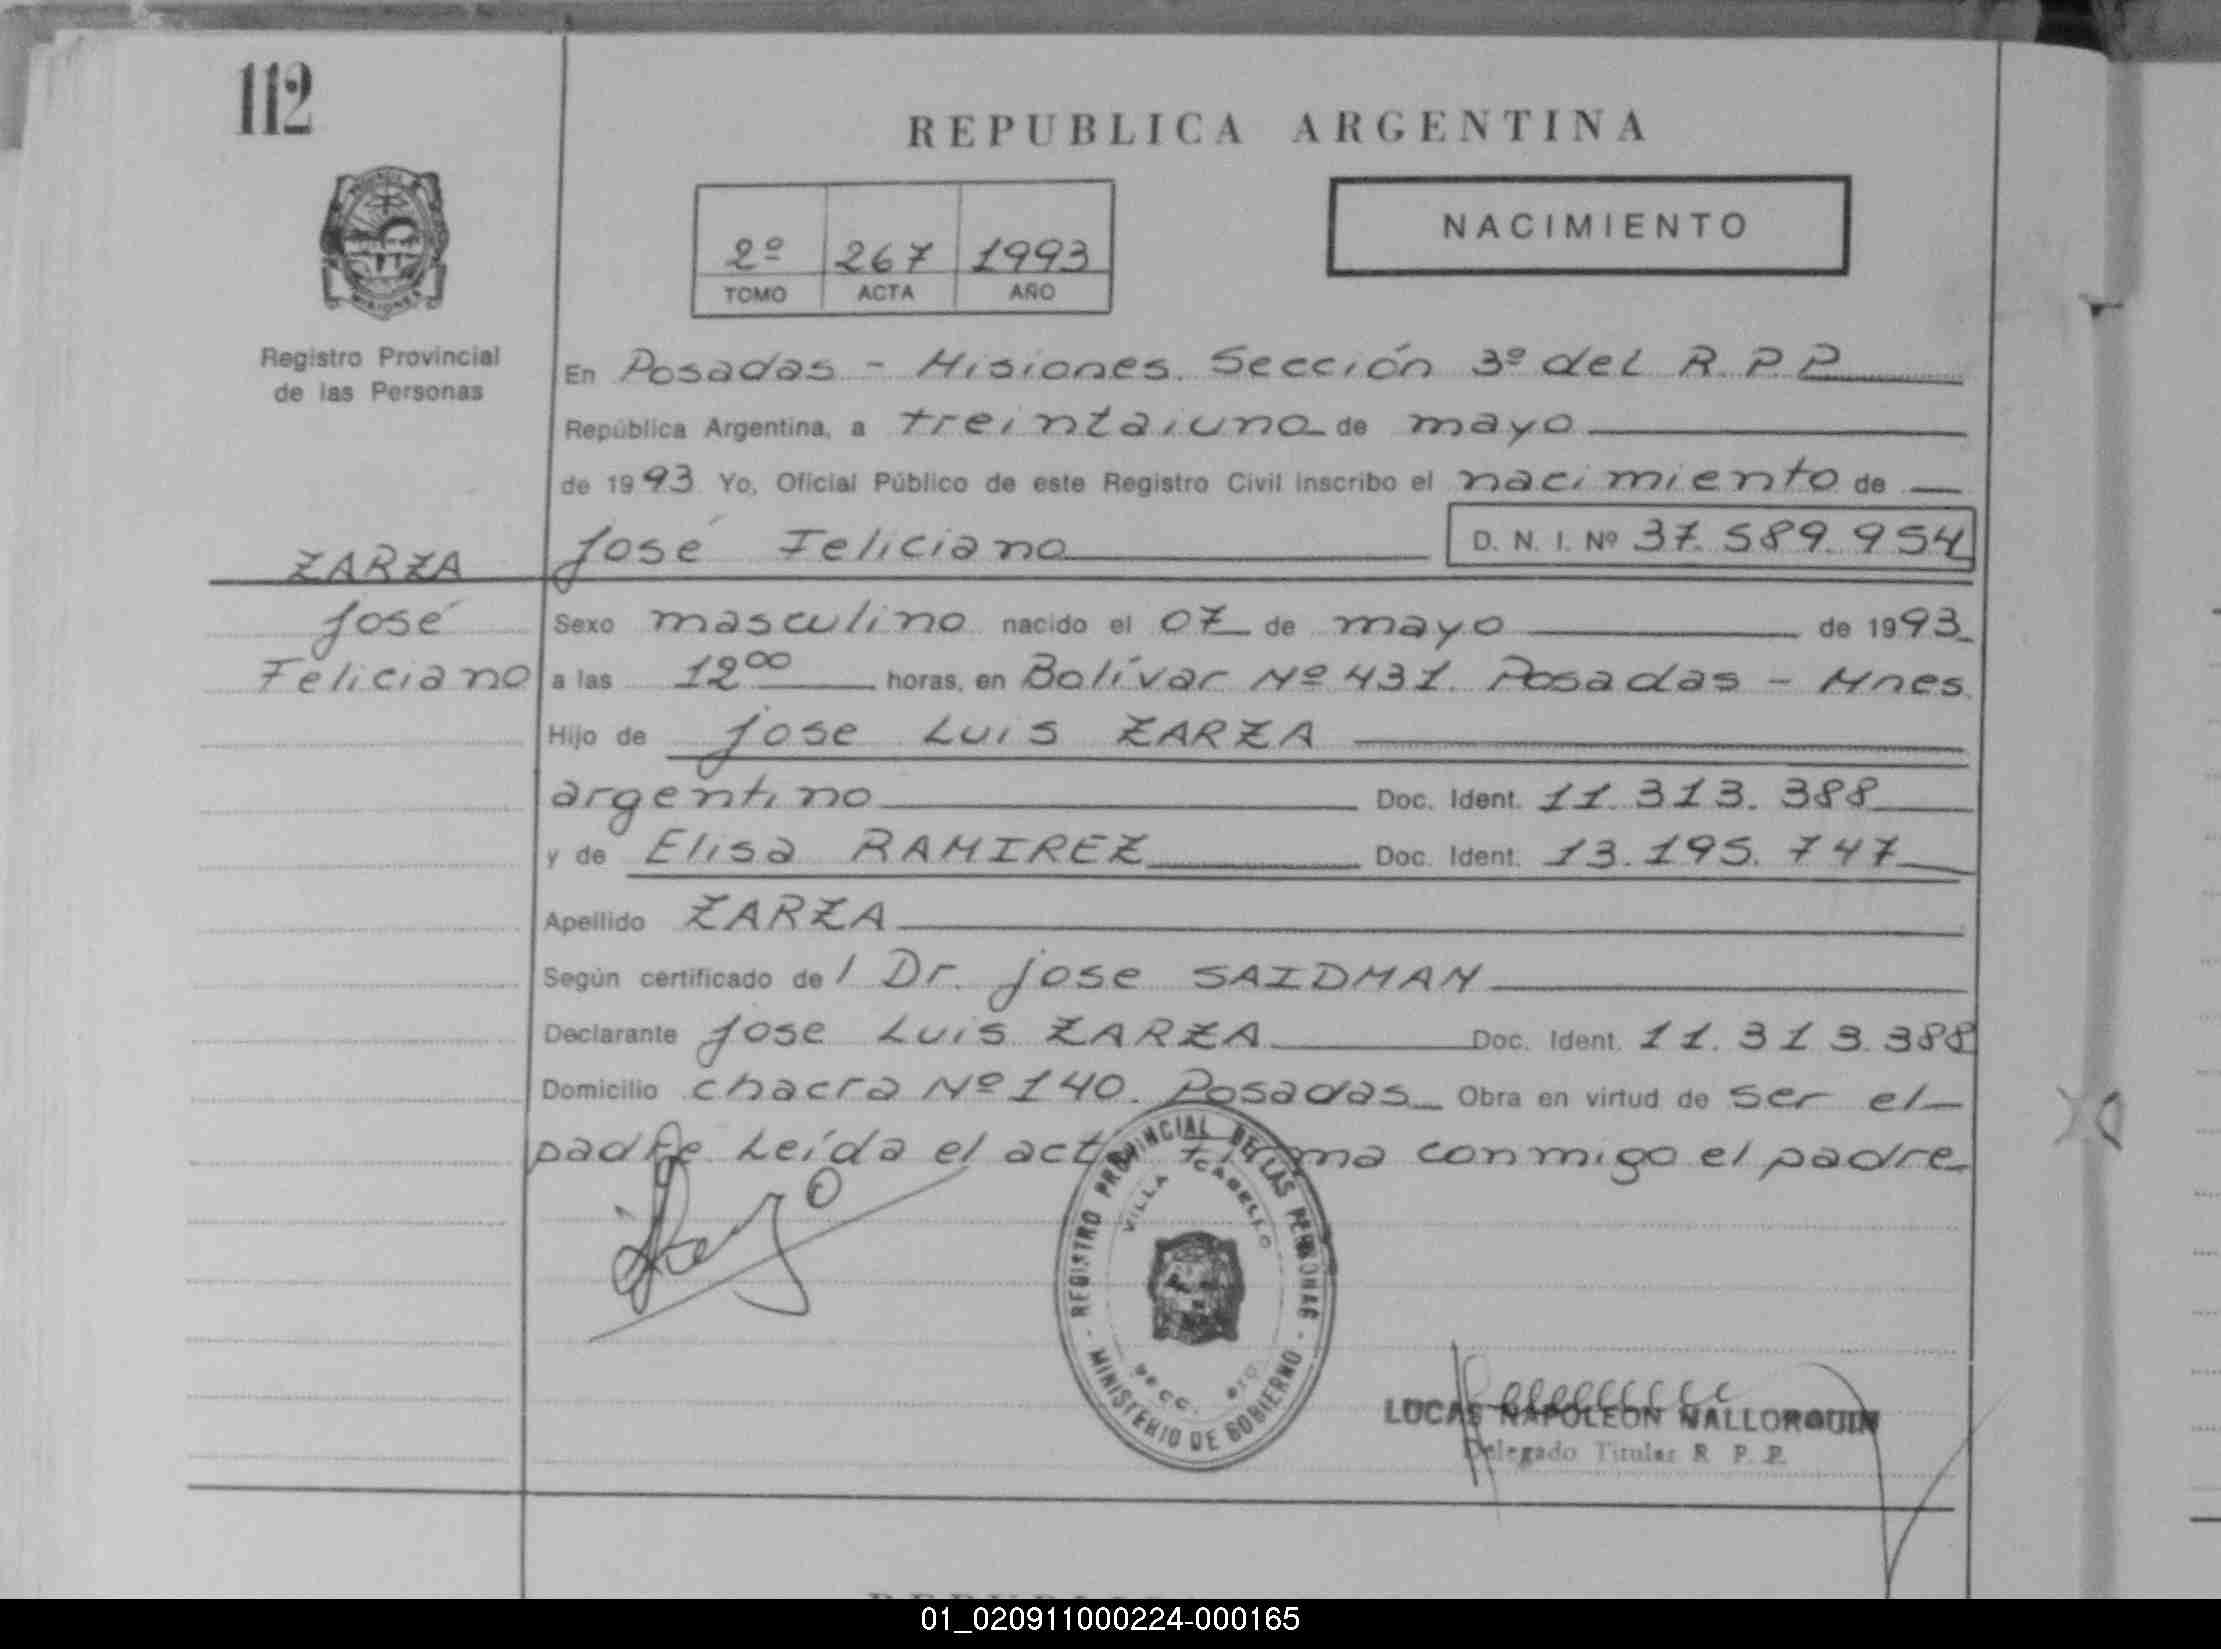 112
REPUBLICA ARGENTINA
NACIMIENTO
2º 267 1993
TOMO ACTA AÑO
Registro Provincial
de las Personas
En Posadas - Misiones. Sección 3º del R.P.P.
República Argentina, a treintaiuno de mayo
de 1993 Yo, Oficial Público de este Registro Civil inscribo el nacimiento de
José Feliciano D. N. I. Nº 37.589.954
ZARZA
José
Feliciano
Sexo masculino nacido el 07 de mayo de 1993
a las 12⁰⁰ horas, en Bolívar Nº 431. Posadas - Mnes.
Hijo de Jose Luis ZARZA
argentino Doc. Ident. 11.313.388
y de Elisa RAMIREZ Doc. Ident. 13.195.747
Apellido ZARZA
Según certificado de l Dr. Jose SAIDMAN
Declarante Jose Luis ZARZA Doc. Ident. 11.313.388
Domicilio chacra Nº 140. Posadas Obra en virtud de ser el
padre. Leída el acta firma conmigo el padre
REGISTRO PROVINCIAL DE LAS PERSONAS
VILLA CABELLO
SECC.
- MINISTERIO DE GOBIERNO -
LUCAS NAPOLEON MALLORQUIN
Delegado Titular R. P. P.
01_020911000224-000165